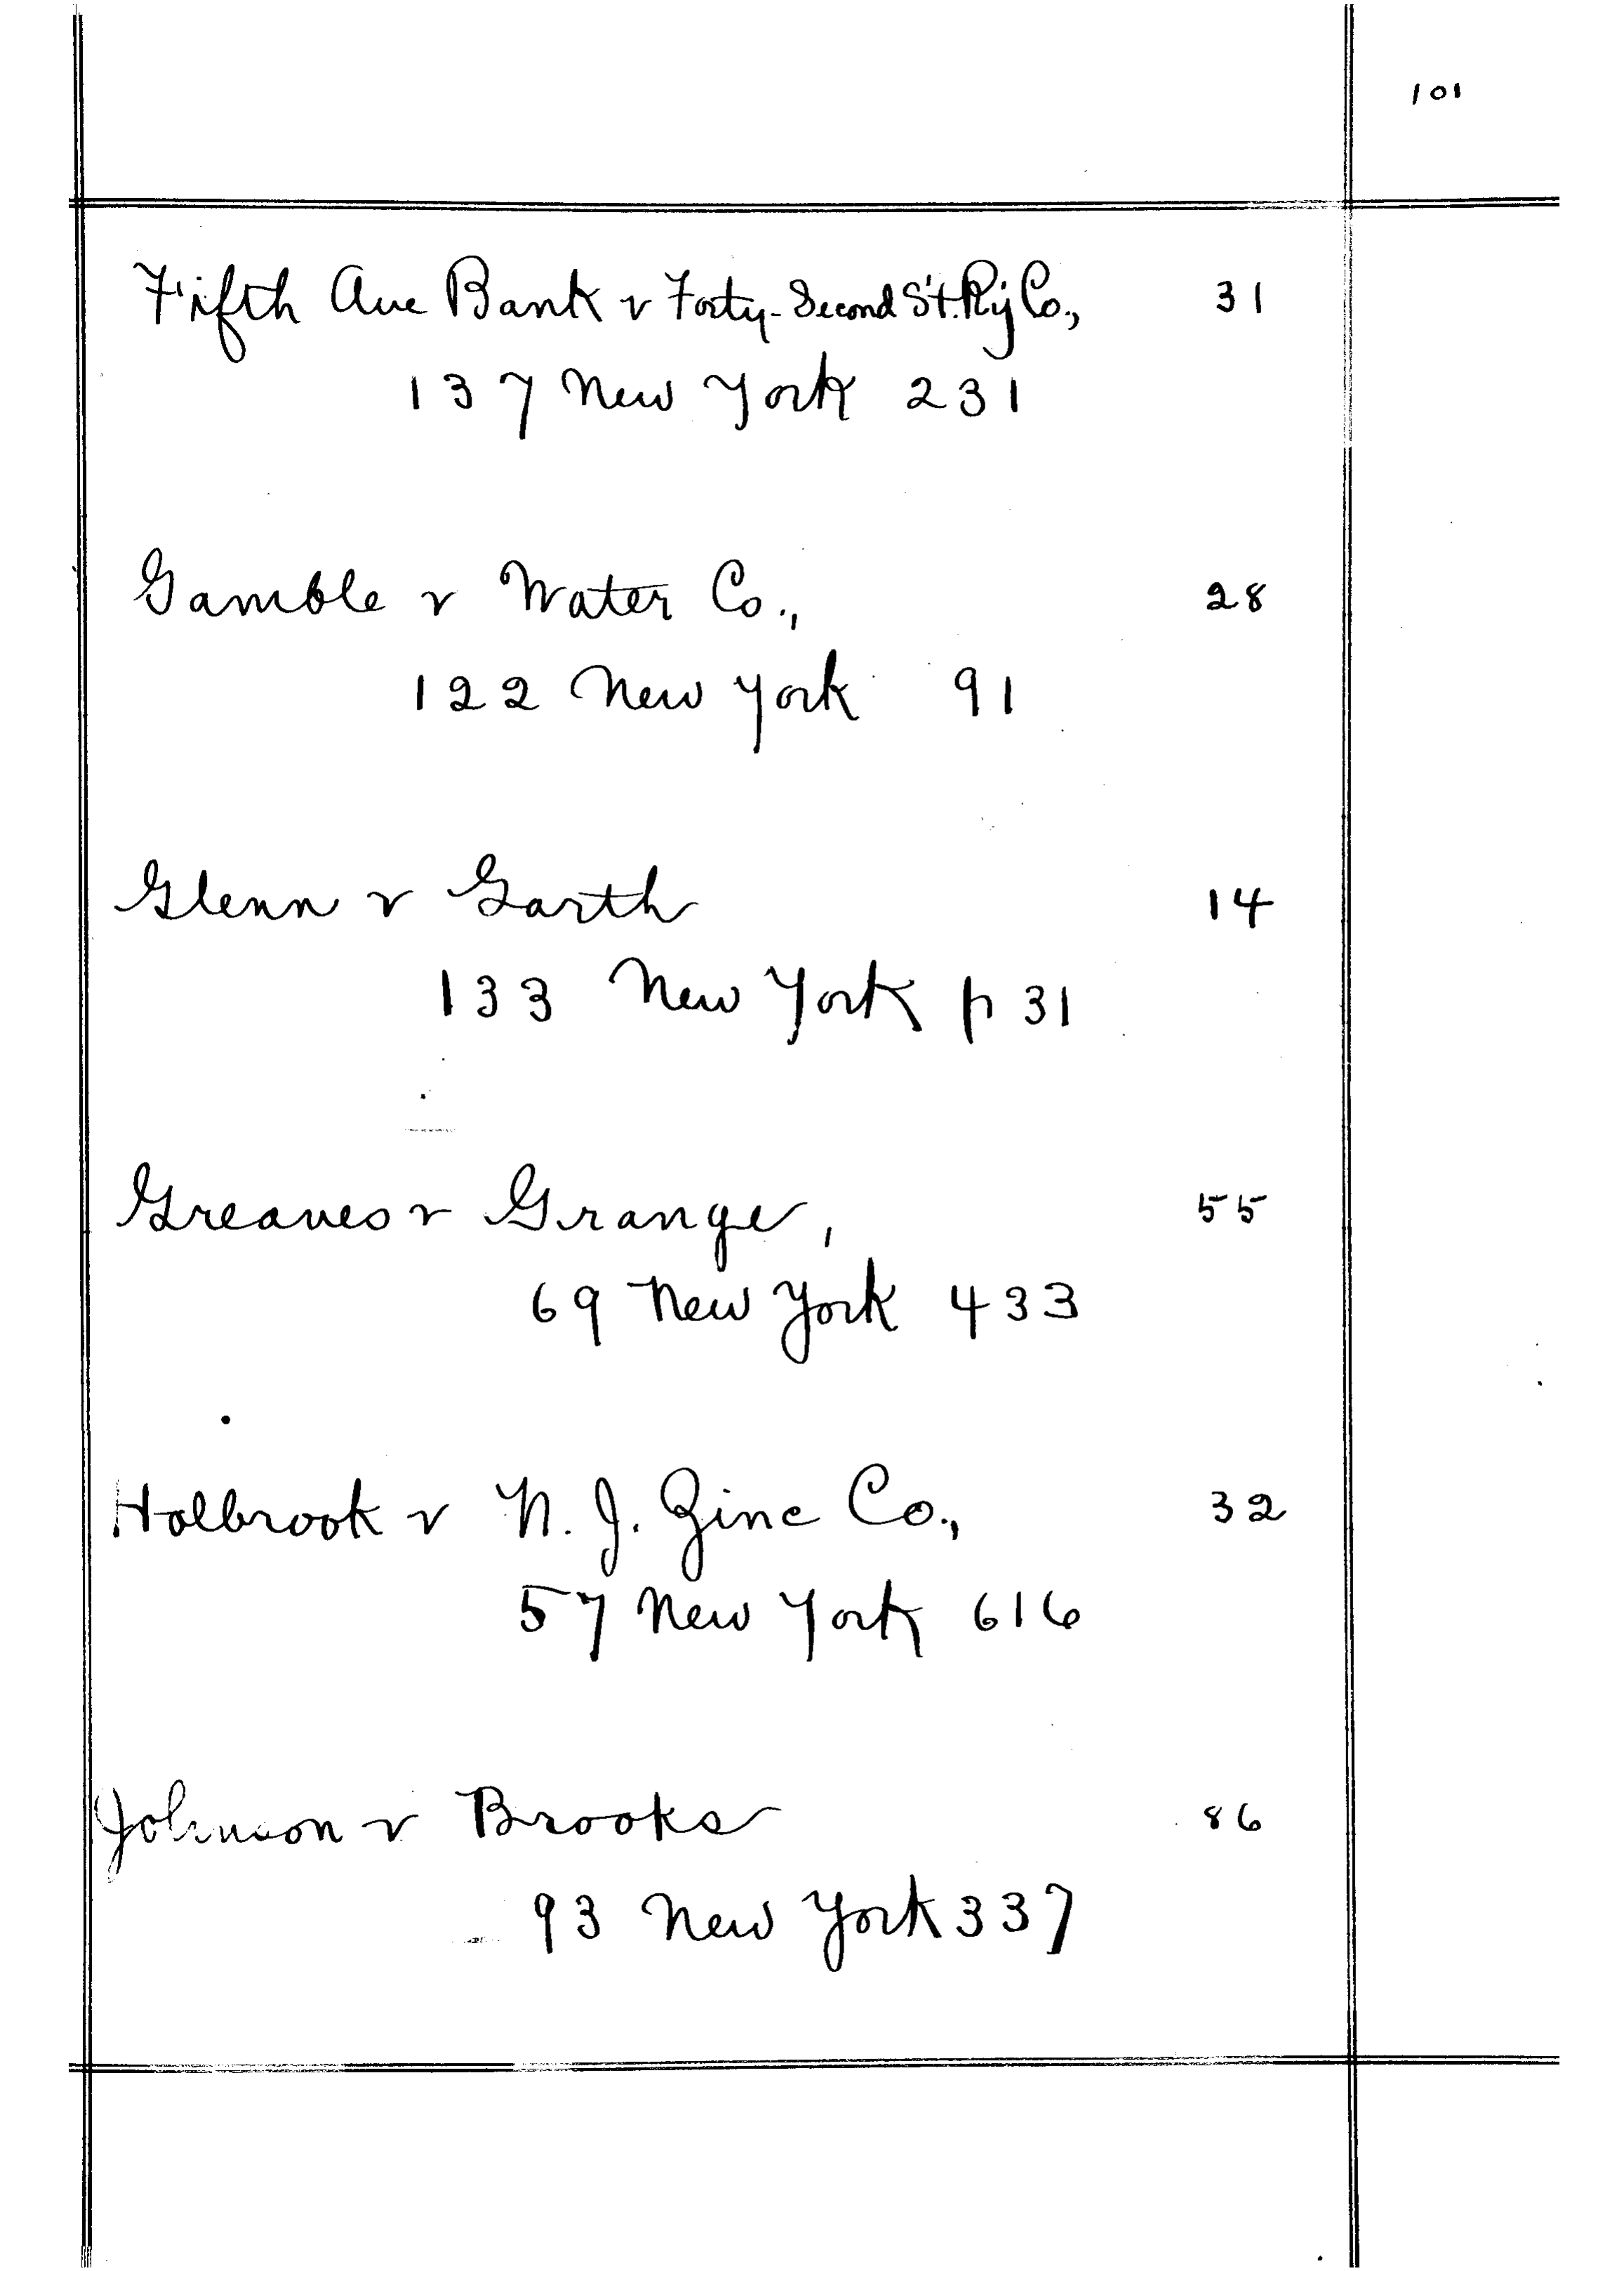 101
Fifth Ave Bank v Forty-Second St. Ry Co., 31
137 New York 231
Gamble v Water Co., 28
122 New York 91
Glenn v Garth 14
133 New York p 31
Greaves v Grange, 55
69 New York 433
Holbrook v N. J. Zinc Co., 32
57 New York 616
Johnson v Brooks 86
93 New York 337